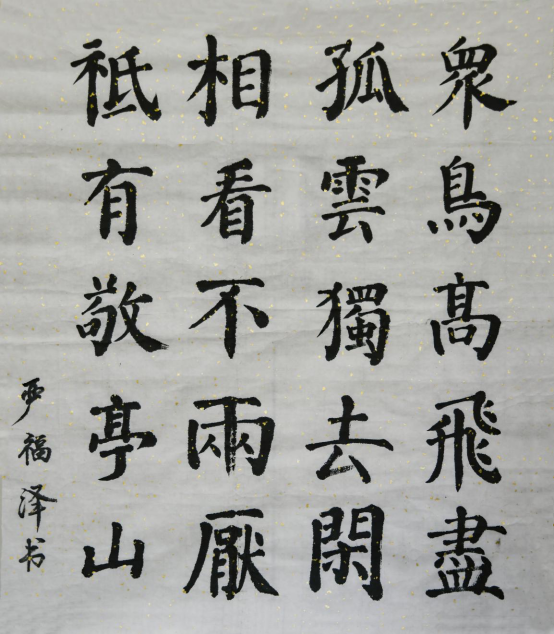 眾鳥髙飛盡
孤雲獨去閑
相看不兩厭
祗有敬亭山
严福泽书